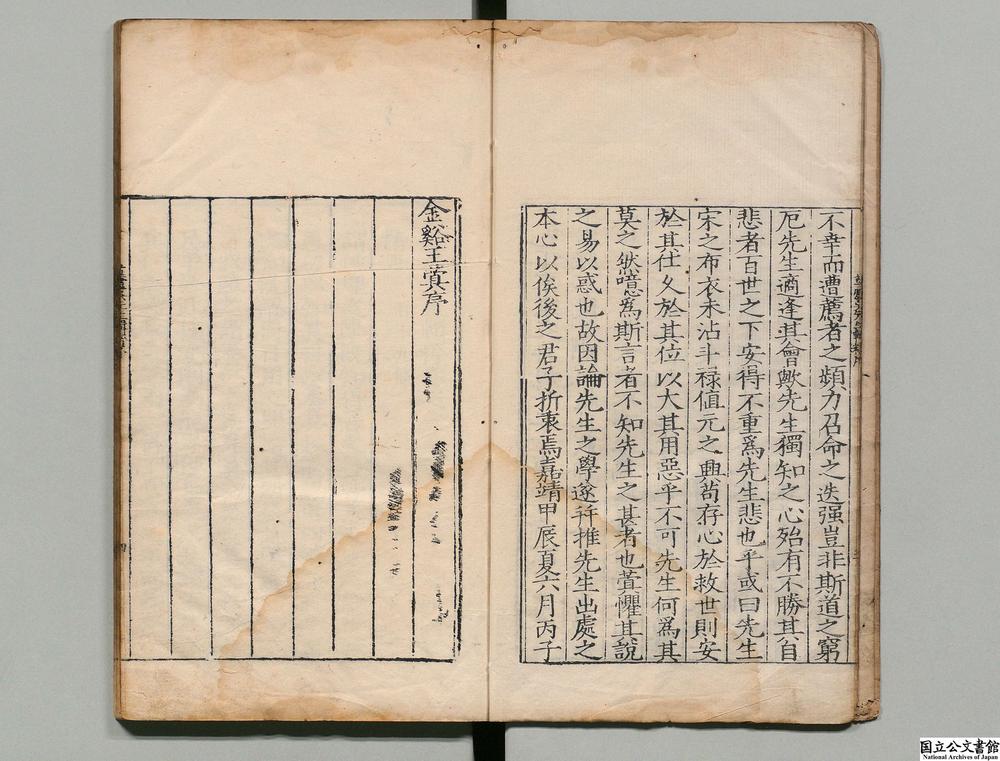 不幸而遭薦者之頻力召命之迭强豈非斯道之窮
厄先生適逢其會歟先生獨知之心殆有不勝其自
悲者百世之下安得不重爲先生悲也乎或曰先生
宋之布衣未沾斗祿值元之興苟存心於救世則安
於其仕久於其位以大其用惡乎不可先生何爲其
莫之然噫爲斯言者不知先生之甚者也蓂懼其說
之易以惑也故因論先生之學遂并推先生出處之
本心以俟後之君子折衷焉嘉靖甲辰夏六月丙子
金谿王蓂序
国立公文書館
National Archives of Japan